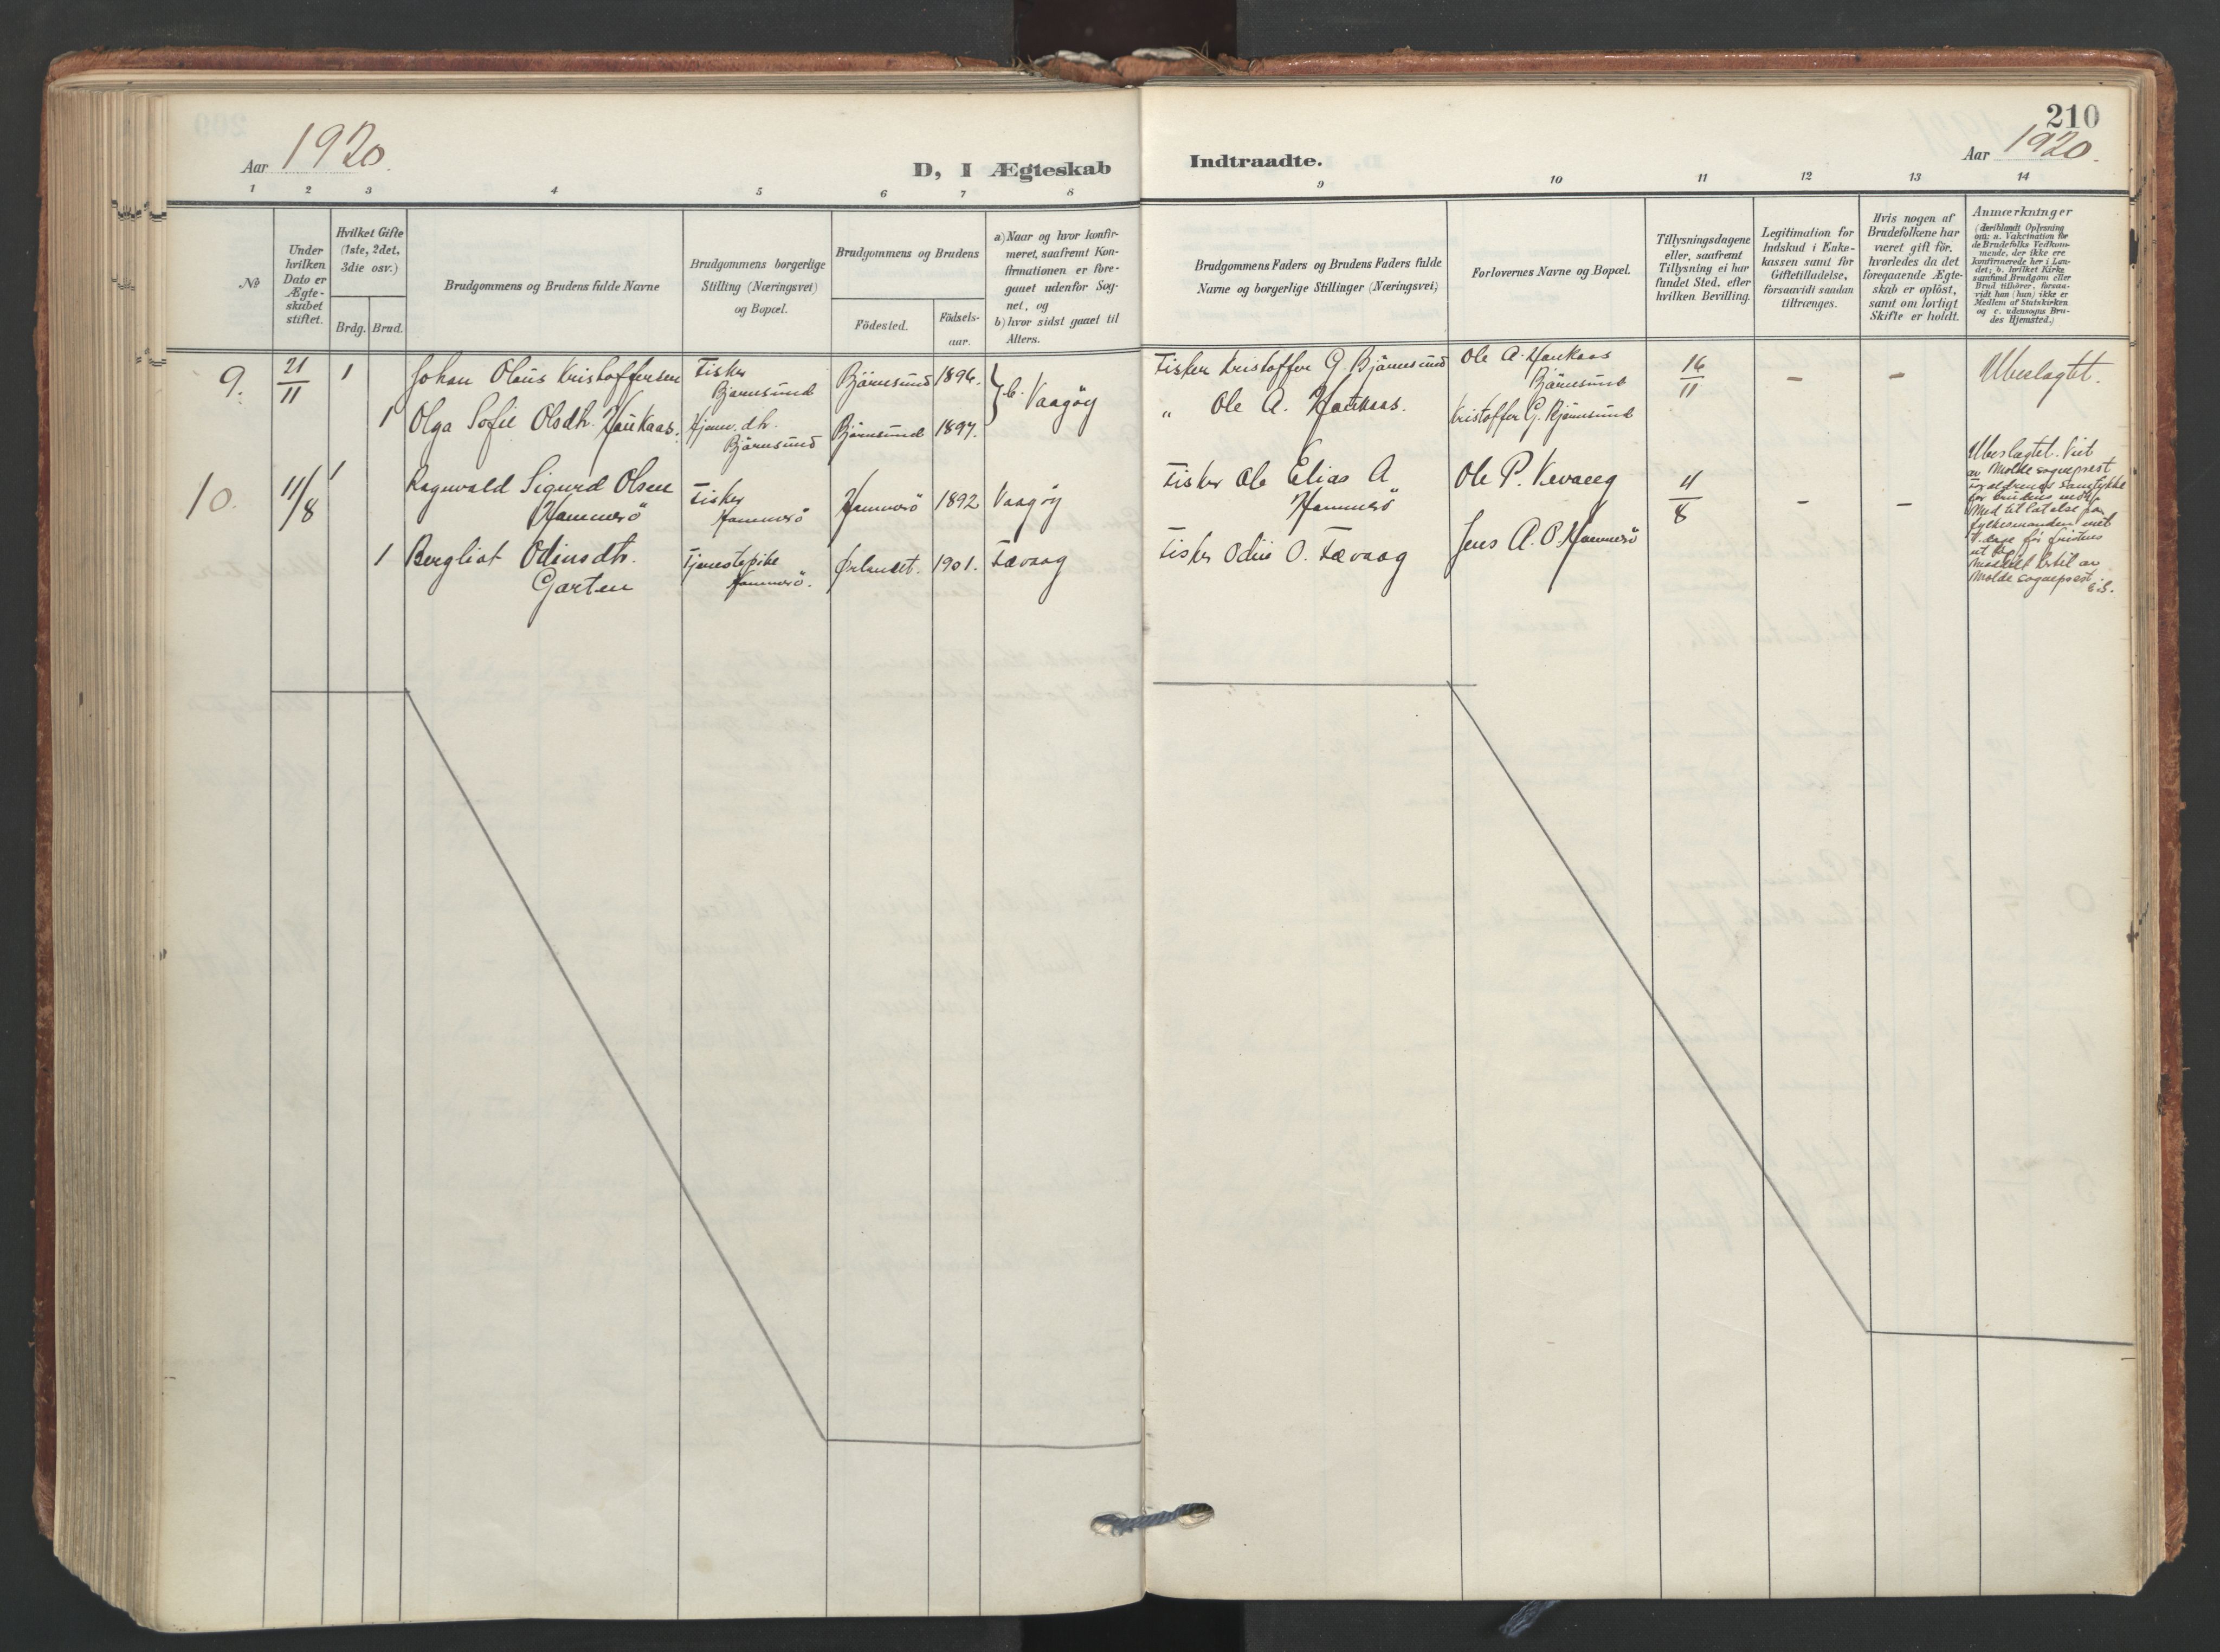 Aar 1920.
D, I Ægteskab
1 2 3 4 5 6 7 8
No
Under hvilken Dato er Ægte-skabet stiftet.
Hvilket Gifte (1ste, 2det, 3die osv.)
Brdg. Brud.
Brudgommens og Brudens fulde Navne
Brudgommens borgerlige
Stilling (Næringsvei)
og Bopæl.
Brudgommens og Brudens
Födested.
Födsels-
aar.
a) Naar og hvor konfir-
meret, saafremt Kon-
firmationen er fore-
gaaet udenfor Sog-
net, og
b) hvor sidst gaaet til
Alters.
9. 21/11 1 Johan Olaus Kristoffersen Fisker Bjørnsund Björnsund 1896. } b. Vaagöy
1 Olga Sofie Olsdtr. Haukaas. Hjemv. dtr. Björnsund Björnsund 1897.
10. 11/8 1 Ragnvald Sigurd Olsen
Hammerö Fisker Hammerö Hammerö 1892 Vaagöy
1 Bergliot Odinsdtr.
Garten Tjenestepike Hammerö. Ørlandet. 1901. Tævaag
210
Indtraadte.
Aar 1920.
9 10 11 12 13 14
Brudgommens Faders og Brudens Faders fulde
Navne og borgerlige Stillinger (Næringsvei)
Forlovernes Navne og Bopæl.
Tillysningsdagene
eller, saafremt
Tillysning ei har
fundet Sted, efter
hvilken Bevilling.
Legitimation for
Indskud i Enke-
kassen samt for
Giftetilladelse,
forsaavidt saadan
tiltrænges.
Hvis nogen af
Brudefolkene har
været gift før,
hvorledes da det
foregaaende Ægte-
skab er opløst,
samt om lovligt
Skifte er holdt.
Anmærkninger
(deriblandt Oplysning
om: a. Vakcination for
de Brudefolks Vedkom-
mende, der ikke ere
konfirmerede her i Lan-
det; b. hvilket Kirke-
samfund Brudgom eller
Brud tilhører, forsaa-
vidt han (hun) ikke er
Medlem af Statskirken
og c. udensogns Bru-
des Hjemsted.)
Fisker Kristoffer G. Björnesund Ole A. Haukaas
Björnsund 16/11 - - Ubeslægtet.
" Ole A. Haukaas. Kristoffer G. Björnsund
Fisker Ole Elias A
Hammerö Ole P. Vevang 4/8 - -
Fisker Odin O. Tævaag Jens A. O. Hammerö
Ubeslægtet. Viet
av Molde sogneprest
Forældrenes samtykke
for brudens vedk.
Med tillatelse fra
fylkesmanden viet
dage før fristens
utløp
Meddelt hertil av
Molde sogneprest.